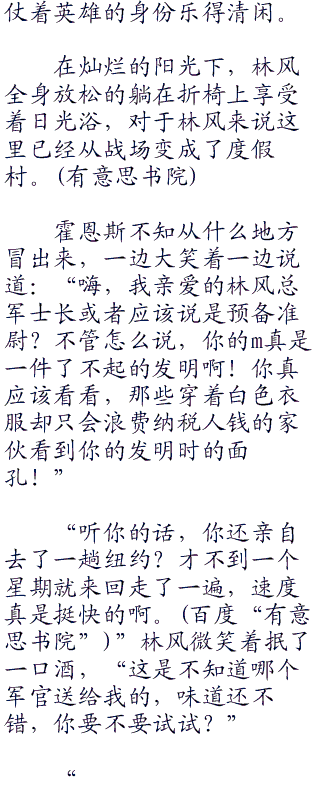 仗着英雄的身份乐得清闲。
在灿烂的阳光下，林风
全身放松的躺在折椅上享受
着日光浴，对于林风来说这
里已经从战场变成了度假
村。(有意思书院)
霍恩斯不知从什么地方
冒出来，一边大笑着一边说
道：“嗨，我亲爱的林风总
军士长或者应该说是预备准
尉？不管怎么说，你的m真是
一件了不起的发明啊！你真
应该看看，那些穿着白色衣
服却只会浪费纳税人钱的家
伙看到你的发明时的面
孔！”
“听你的话，你还亲自
去了一趟纽约？才不到一个
星期就来回走了一遍，速度
真是挺快的啊。(百度“有意
思书院”)”林风微笑着抿了
一口酒，“这是不知道哪个
军官送给我的，味道还不
错，你要不要试试？”
“